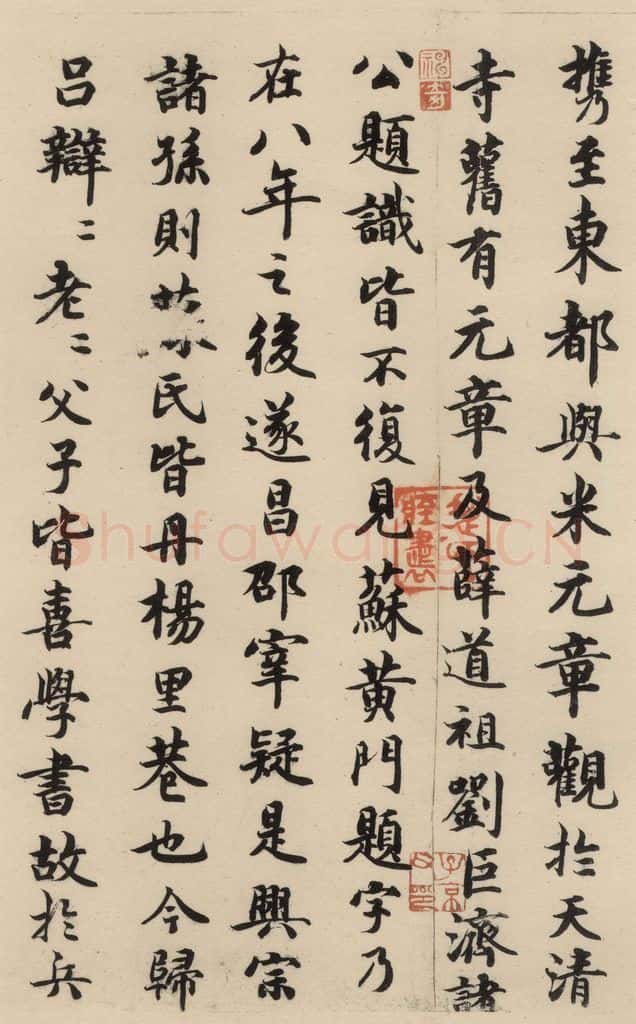 攜至東都與米元章觀於天清
寺舊有元章及薛道祖劉巨濟諸
公題識皆不復見蘇黃門題字乃
在八年之後遂昌邵宰疑是興宗
諸孫則 氏皆丹楊里巷也今歸
呂辯〻老〻父子皆喜學書故於兵
Shufawang.CN